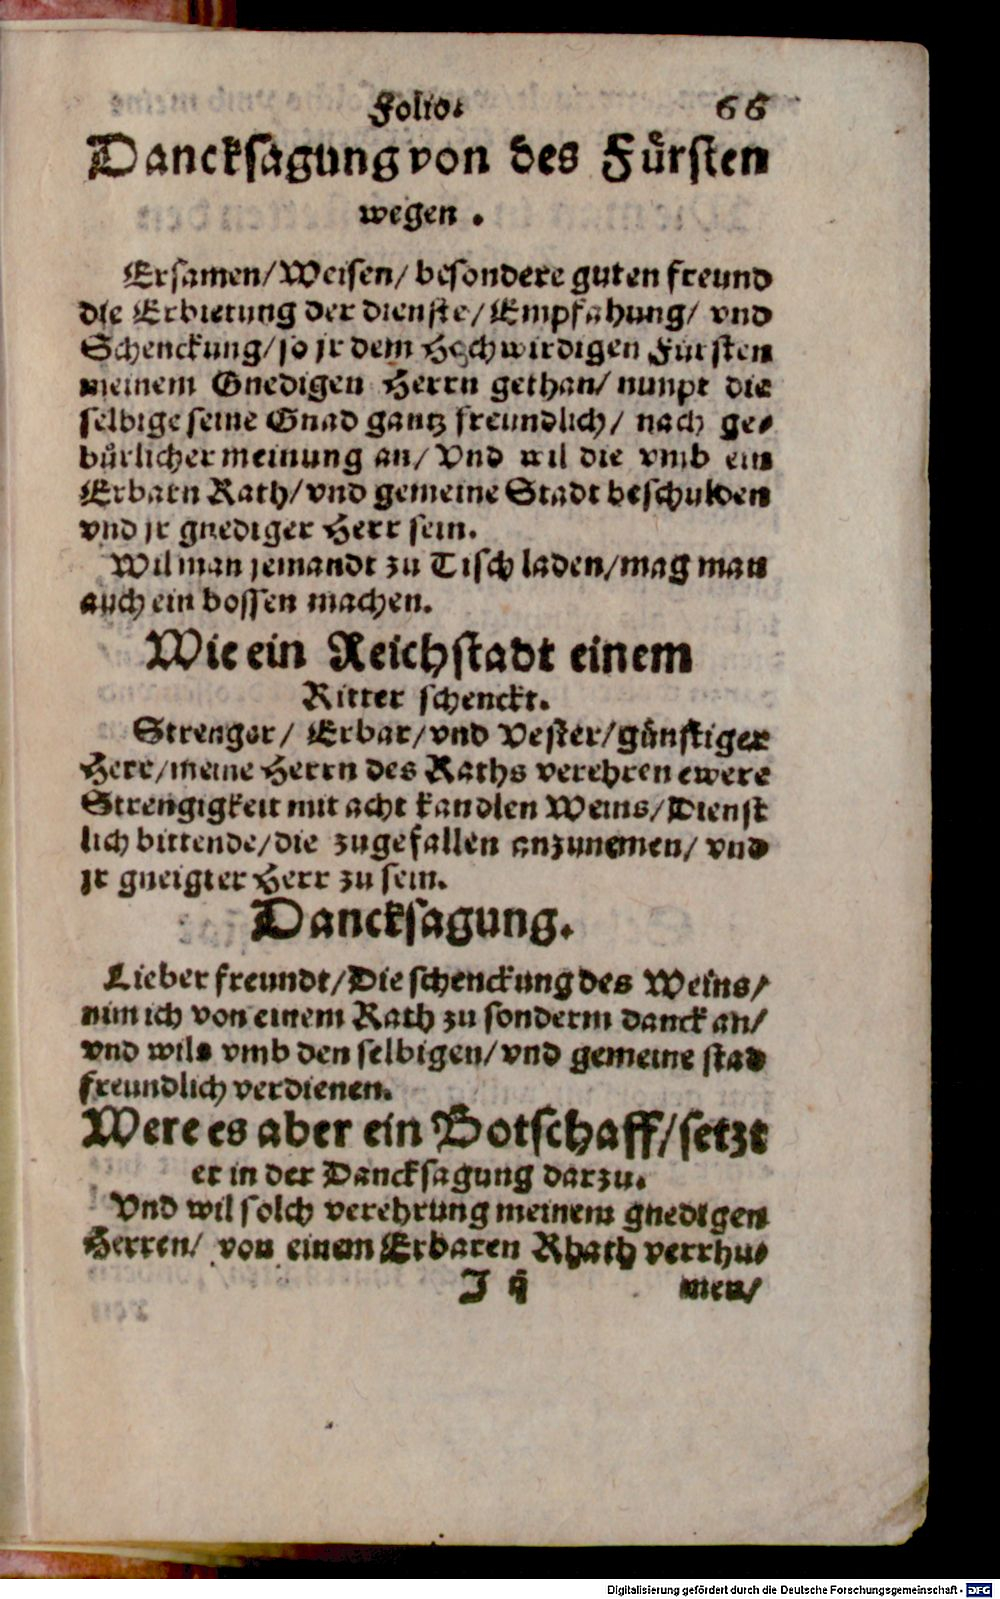 Folio. 66
Dancksagung von des Fürsten
wegen.
Ersamen/Weisen/ besondere guten freund
die Erbietung der dienste/Empfahung/ vnd
Schenckung/so jr dem Hochwirdigen Fürsten
meinem Gnedigen Herrn gethan/ nimpt die
selbige seine Gnad gantz freundlich/ nach ge-
bürlicher meinung an/ Vnd wil die vmb ein
Erbarn Rath/vnd gemeine Stadt beschulden
vnd jr gnediger Herr sein.
Wil man jemandt zu Tisch laden/mag man
auch ein bossen machen.
Wie ein Reichstadt einem
Ritter schenckt.
Strenger/ Erbar/vnd Vester/günstiger
Herr/meine Herrn des Raths verehren ewere
Strengigkeit mit acht kandlen Weins/Dienst
lich bittende/die zugefallen anzunemen/ vnd
jr gneigter Herr zu sein.
Dancksagung.
Lieber freundt/Die schenckung des Weins/
nim ich von einem Rath zu sonderm danck an/
vnd wils vmb den selbigen/vnd gemeine stad
freundlich verdienen.
Were es aber ein Botschaff/setzt
er in der Dancksagung darzu.
Vnd wil solch verehrung meinem gnedigen
Herren/ von einem Erbaren Rhath verrhu-
J ij men/
Digitalisierung gefördert durch die Deutsche Forschungsgemeinschaft - DFG